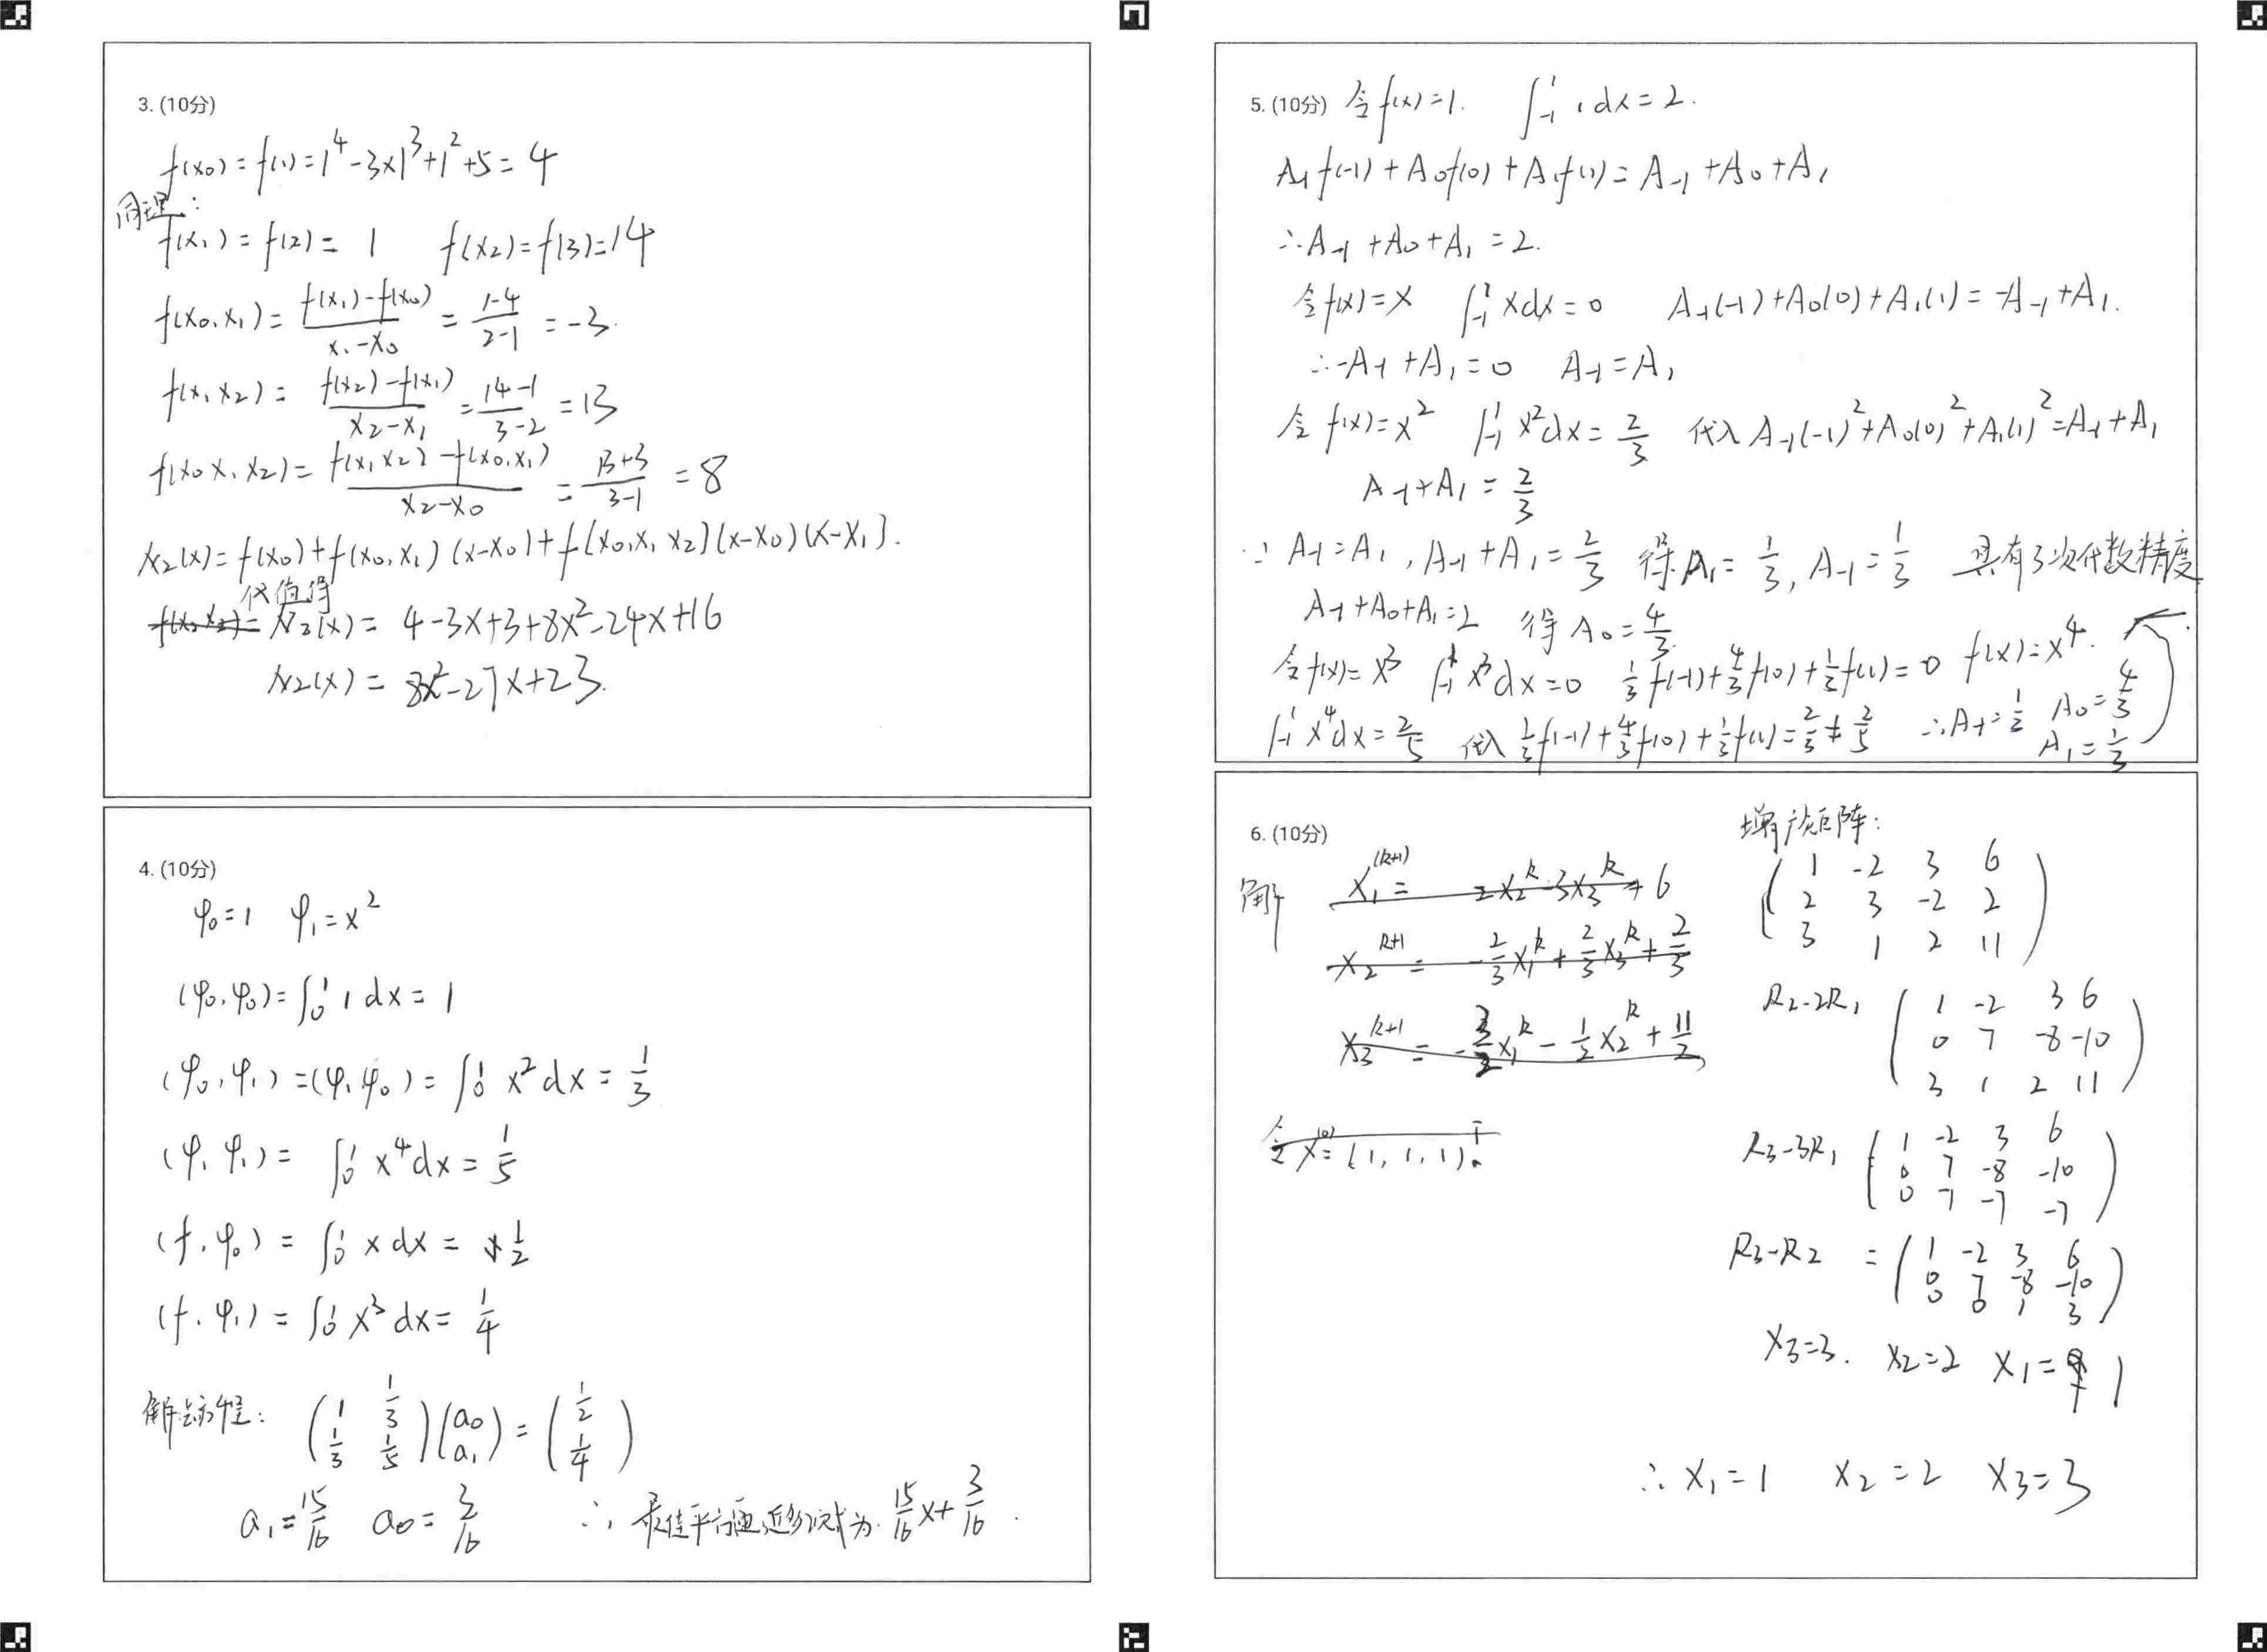 3. (10分)
f(x₀) = f(1) = 1⁴-3×1³+1²+5 = 4
同理:
f(x₁) = f(2) = 1 f(x₂) = f(3) = 14
f(x₀,x₁) = \frac{f(x₁)-f(x₀)}{x₁-x₀} = \frac{1-4}{2-1} = -3.
f(x₁x₂) = \frac{f(x₂)-f(x₁)}{x₂-x₁} = \frac{14-1}{3-2} = 13
f(x₀x₁x₂) = \frac{f(x₁x₂)-f(x₀,x₁)}{x₂-x₀} = \frac{13+3}{3-1} = 8
N₂(x) = f(x₀)+f(x₀,x₁)(x-x₀)+f[x₀,x₁x₂](x-x₀)(x-x₁).
代值得
N₂(x) = 4-3x+3+8x²-24x+16
N₂(x) = 8x²-27x+23.
4. (10分)
φ₀=1 φ₁=x²
(φ₀,φ₀) = ∫₀¹ 1 dx = 1
(φ₀,φ₁) = (φ₁φ₀) = ∫₀¹ x² dx = \frac{1}{3}
(φ₁φ₁) = ∫₀¹ x⁴dx = \frac{1}{5}
(f,φ₀) = ∫₀¹ x dx = \frac{1}{2}
(f,φ₁) = ∫₀¹ x³ dx = \frac{1}{4}
解法方程: \begin{pmatrix} 1 & \frac{1}{3} \\ \frac{1}{3} & \frac{1}{5} \end{pmatrix} \begin{pmatrix} a₀ \\ a₁ \end{pmatrix} = \begin{pmatrix} \frac{1}{2} \\ \frac{1}{4} \end{pmatrix}
a₁ = \frac{15}{16} a₀ = \frac{3}{16} ∴ 最佳平方逼近多项式为 \frac{15}{16}x+\frac{3}{16}.
5. (10分) 令f(x)=1. ∫₋₁¹ 1 dx = 2.
A₋₁f(-1)+A₀f(0)+A₁f(1) = A₋₁+A₀+A₁
∴A₋₁+A₀+A₁ = 2.
令f(x)=x ∫₋₁¹ xdx = 0 A₋₁(-1)+A₀(0)+A₁(1) = -A₋₁+A₁.
∴-A₋₁+A₁ = 0 A₋₁=A₁
令f(x)=x² ∫₋₁¹ x²dx = \frac{2}{3} 代入 A₋₁(-1)²+A₀(0)²+A₁(1)²=A₋₁+A₁
A₋₁+A₁ = \frac{2}{3}
∵ A₋₁=A₁, A₋₁+A₁ = \frac{2}{3} 得 A₁ = \frac{1}{3}, A₋₁ = \frac{1}{3} 具有3次代数精度
A₋₁+A₀+A₁=2 得 A₀ = \frac{4}{3}.
令f(x)=x³ ∫₋₁¹ x³dx = 0 \frac{1}{3}f(-1)+\frac{4}{3}f(0)+\frac{1}{3}f(1) = 0 f(x)=x⁴.
∫₋₁¹ x⁴dx = \frac{2}{5} 代入 \frac{1}{3}f(-1)+\frac{4}{3}f(0)+\frac{1}{3}f(1) = \frac{2}{3} ≠ \frac{2}{5} ∴A₋₁ = \frac{1}{3} A₀ = \frac{4}{3}
A₁ = \frac{1}{3}
6. (10分)
解
x₁^{(k+1)} = 2x₂^k-3x₃^k+6
x₂^{k+1} = -\frac{2}{3}x₁^k+\frac{2}{3}x₃^k+\frac{2}{3}
x₃^{k+1} = -\frac{3}{2}x₁^k-\frac{1}{2}x₂^k+\frac{11}{2}
令x^{(0)}=(1,1,1)^T.
增广矩阵:
\begin{pmatrix} 1 & -2 & 3 & 6 \\ 2 & 3 & -2 & 2 \\ 3 & 1 & 2 & 11 \end{pmatrix}
R₂-2R₁ \begin{pmatrix} 1 & -2 & 3 & 6 \\ 0 & 7 & -8 & -10 \\ 3 & 1 & 2 & 11 \end{pmatrix}
R₃-3R₁ \begin{pmatrix} 1 & -2 & 3 & 6 \\ 0 & 7 & -8 & -10 \\ 0 & 7 & -7 & -7 \end{pmatrix}
R₃-R₂ = \begin{pmatrix} 1 & -2 & 3 & 6 \\ 0 & 7 & -8 & -10 \\ 0 & 0 & 1 & 3 \end{pmatrix}
x₃=3. x₂=2 x₁= 1
∴ x₁=1 x₂=2 x₃=3